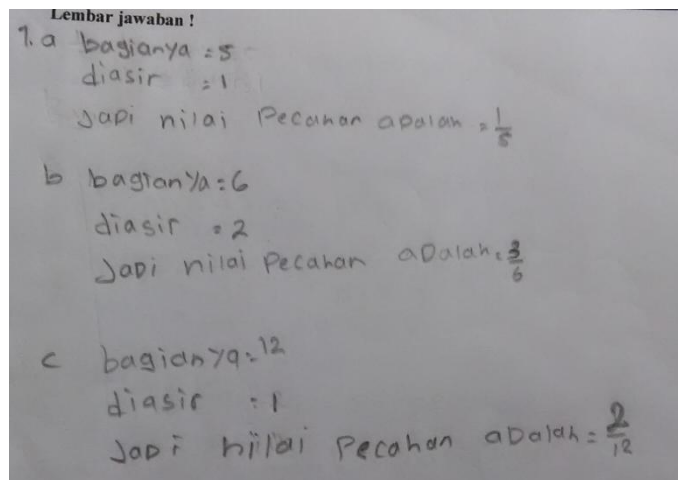 Lembar jawaban !
1. a bagianya = 5
diasir = 1
Jadi nilai Pecahan adalah = 1/5
b bagianya = 6
diasir = 2
Jadi nilai Pecahan adalah = 3/6
c bagianya = 12
diasir = 1
Jadi nilai Pecahan adalah = 2/12